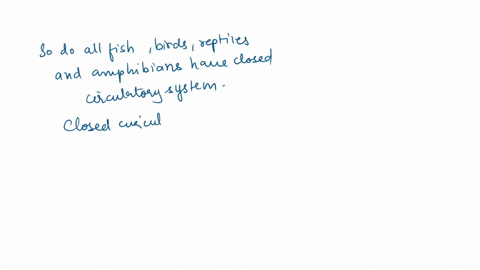 So do all fish , birds, reptiles
and amphibians have closed
circulatory system.
Closed circul